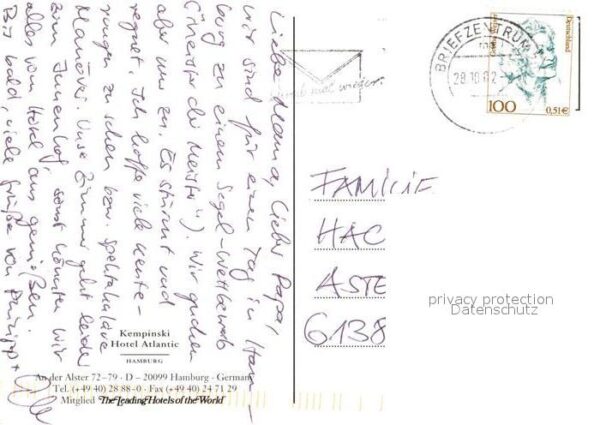 Liebe Mama, Lieber Papa,
wir sind für einen Tag in Ham-
burg zu einem Segel-Wettbewerb
("Meister der Meister"). Wir gucken
aber nur zu. Es stürmt und
regnet. Ich hoffe viele Kente-
rungen zu sehen bzw. spektakuläre
Manöver. Unser Zimmer geht leider
zum Innenhof, sonst könnten wir
alles vom Hotel aus genießen.
Bis bald, viele Grüße von Philipp +
Kempinski
Hotel Atlantic
HAMBURG
An der Alster 72–79 · D – 20099 Hamburg - Germany
Tel. (+49 40) 28 88-0 · Fax (+49 40) 24 71 29
Mitglied The Leading Hotels of the World
mal wieder
BRIEFZENTRUM
28.10.02
Deutschland
100
0,51€
FAMILIE
HAC
ASTE
6138
privacy protection
Datenschutz